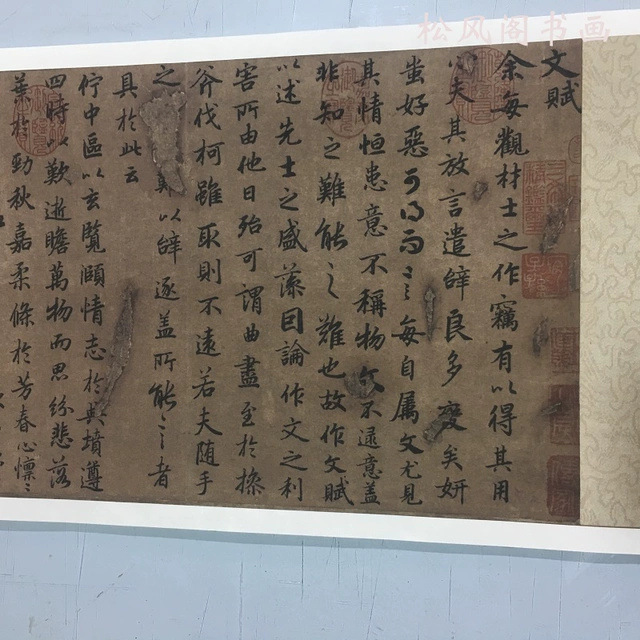 松风阁书画
文賦
余每觀材士之作竊有以得其用
心夫其放言遣辭良多變矣妍
蚩好惡可得而言每自属文尤見
其情恒患意不稱物文不逮意盖
非知之難能之難也故作文賦
以述先士之盛藻因論作文之利
害所由他日殆可謂曲盡至於操
斧伐柯雖取則不遠若夫随手
之難以辭逐盖所能言者
具於此云
佇中區以玄覧頤情志於典墳遵
四時以歎逝瞻萬物而思紛悲落
葉於勁秋嘉柔條於芳春心懍々